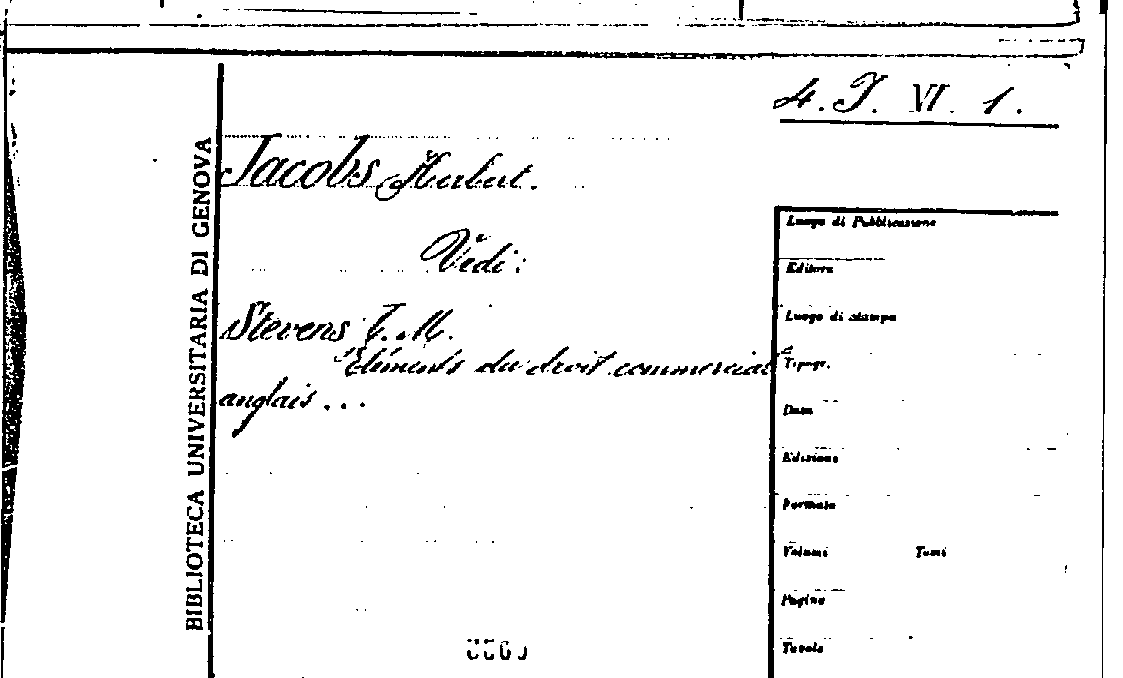 4. J. VI. 1.
BIBLIOTECA UNIVERSITARIA DI GENOVA
Jacobs Herbert.
Vedi:
Stevens T. M.
"Eléments du droit commercial"
anglais...
Luogo di Pubblicazione
Editore
Luogo di stampa
Tipogr.
Data
Edizione
Formato
Volumi Tomi
Pagine
Tavole